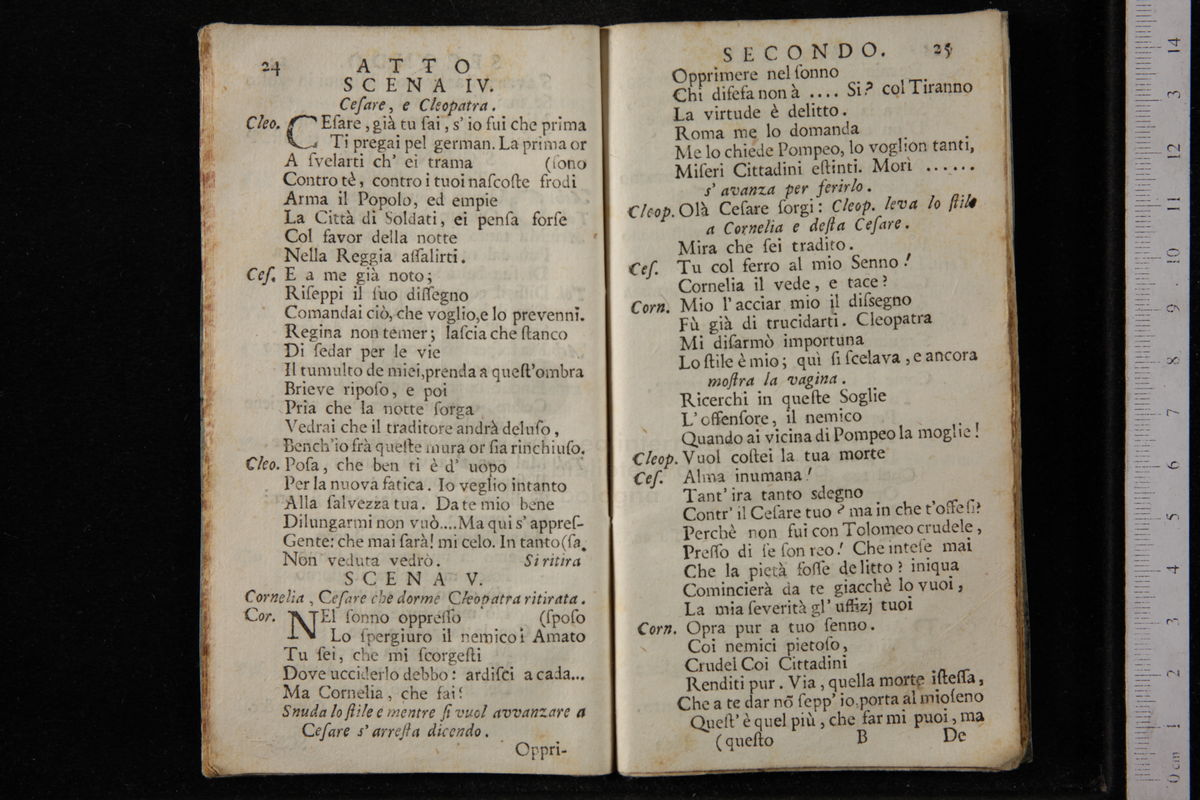 24 ATTO
SCENA IV.
Ceſare, e Cleopatra.
Cleo. CEſare, già tu ſai, s' io fui che prima
Ti pregai pel german. La prima or
A ſvelarti ch' ei trama (ſono
Contro tè, contro i tuoi naſcoſte frodi
Arma il Popolo, ed empie
La Città di Soldati, ei penſa forſe
Col favor della notte
Nella Reggia aſſalirti.
Ceſ. E a me già noto;
Riſeppi il ſuo diſſegno
Comandai ciò, che voglio,e lo prevennì.
Regina non temer; laſcia che ſtanco
Di ſedar per le vie
Il tumulto de miei,prenda a queſt'ombra
Brieve ripoſo, e poi
Pria che la notte ſorga
Vedrai che il traditore andrà deluſo,
Bench'io frà queſte mura or ſia rinchiuſo.
Cleo. Poſa, che ben ti è d' uopo
Per la nuova fatica. Io veglio intanto
Alla ſalvezza tua. Da te mio bene
Dilungarmi non vuò....Ma qui s' appreſ-
Gente: che mai ſarà! mi celo. In tanto(ſa.
Non veduta vedrò. Si ritira
SCENA V.
Cornelia, Ceſare che dorme Cleopatra ritirata.
Cor. NEl ſonno oppreſſo (ſpoſo
Lo ſpergiuro il nemico: Amato
Tu ſei, che mi ſcorgeſti
Dove ucciderlo debbo: ardiſci a cada...
Ma Cornelia, che fai!
Snuda lo ſtile e mentre ſi vuol avvanzare a
Ceſare s' arreſta dicendo.
Oppri-
SECONDO. 25
Opprimere nel ſonno
Chi difeſa non à .... Si? col Tiranno
La virtude è delitto.
Roma me lo domanda
Me lo chiede Pompeo, lo voglion tanti,
Miſeri Cittadini eſtinti. Morì ......
s' avanza per ferirlo.
Cleop. Olà Ceſare ſorgi: Cleop. leva lo ſtile
a Cornelia e deſta Ceſare.
Mira che ſei tradito.
Ceſ. Tu col ferro al mio Senno!
Cornelia il vede, e tace?
Corn. Mio l'acciar mio il diſsegno
Fù già di trucidarti. Cleopatra
Mi diſarmò importuna
Lo ſtile è mio; quì ſi ſcelava, e ancora
moſtra la vagina.
Ricerchi in queſte Soglie
L'offenſore, il nemico
Quando ai vicina di Pompeo la moglie!
Cleop. Vuol coſtei la tua morte
Ceſ. Alma inumana!
Tant' ira tanto sdegno
Contr' il Ceſare tuo? ma in che t'offeſi?
Perchè non fui con Tolomeo crudele,
Preſſo di ſe ſon reo! Che inteſe mai
Che la pietà foſſe delitto? iniqua
Comincierà da te giacchè lo vuoi,
La mia ſeverità gl' uffizj tuoi
Corn. Opra pur a tuo ſenno.
Coi nemici pietoſo,
Crudel Coi Cittadini
Renditi pur. Via, quella morte iſteſſa,
Che a te dar nõ ſepp' io,porta al mio ſeno
Queſt' è quel più, che far mi puoi, ma
(queſto B De